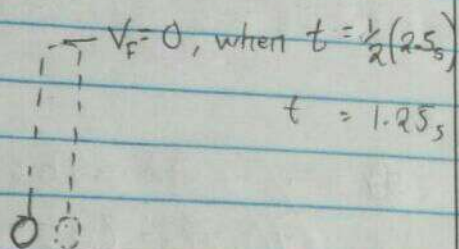 V_F = 0, when t = 1/2 (2.5s)
t = 1.25s